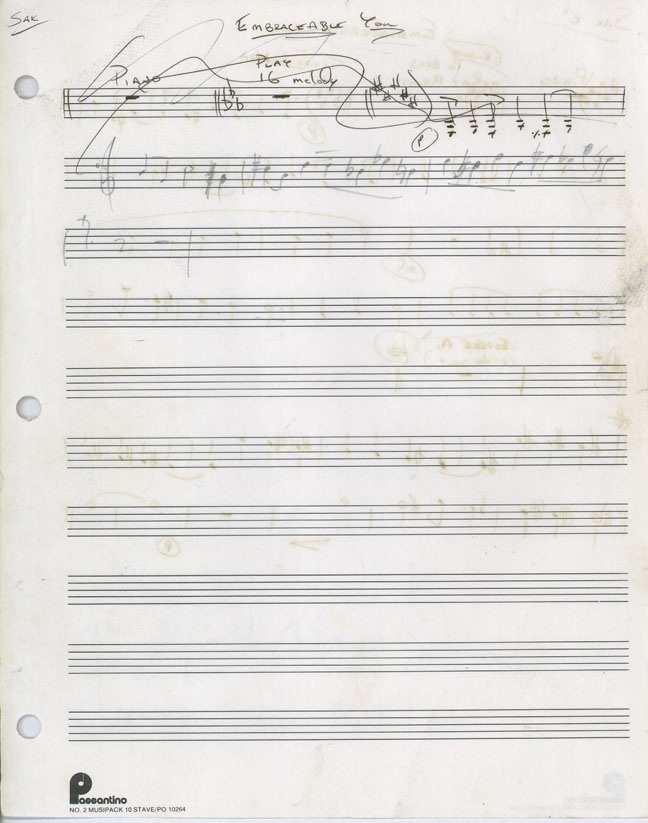 Sax
Embraceable You
Piano
Play
16 melody
P
Passantino
NO. 2 MUSIPACK 10 STAVE/PO 10264